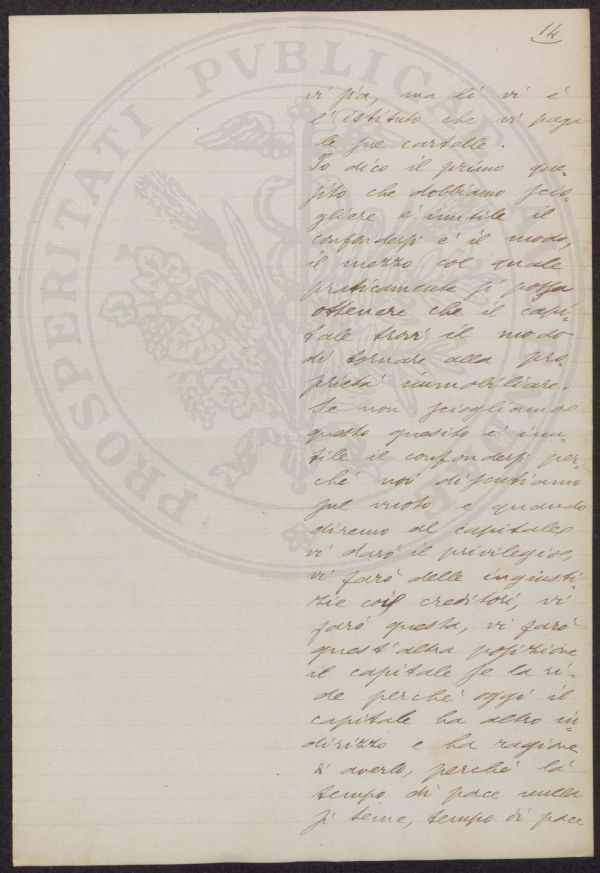 14
vi sia, ma lì vi è
l'istituto che vi paga
le sue cartelle.
Io dico il primo que-
sito che dobbiamo scio-
gliere è inutile il
confondersi è il modo,
il mezzo col quale
praticamente si possa
ottenere che il capi-
tale trovi il modo
di tornare alla pro-
prietà immobiliare.
Se non sciogliamo
questo quesito è inu-
tile il confondersi per-
ché noi discutiamo
sul vuoto e quando
diremo al capitale
vi darò il privilegio,
vi farò delle ingiusti-
zie coi creditori, vi
farò questa, vi farò
quest'altra posizione
il capitale se la ri-
de perché oggi il
capitale ha altro in-
dirizzo e ha ragione
d'averlo, perché là
tempo di pace nulla
si teme, tempo di pace
PROSPERITATI PVBLICAE